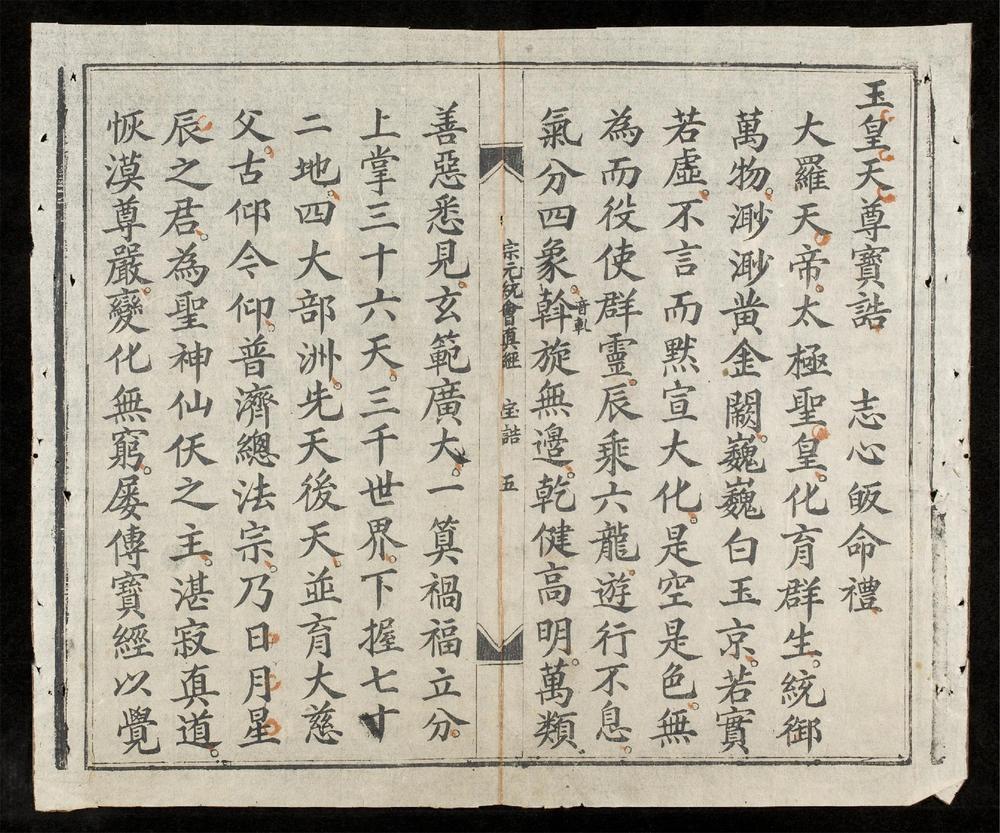 玉皇天尊寶誥　志心皈命禮
大羅天帝。太極聖皇。化育群生。統御
萬物。渺渺黄金闕。巍巍白玉京。若實
若虛。不言而默宣大化。是空是色。無
為而役使群靈。辰乘六龍。遊行不息。
氣分四象。斡音軋旋無邊。乾健高明。萬類
宗元統會真經　宝誥　五
善惡悉見。玄範廣大。一筭禍福立分。
上掌三十六天。三千世界。下握七十
二地。四大部洲。先天後天。並育大慈
父。古仰今仰。普濟總法宗。乃日月星
辰之君。為聖神仙佛之主。湛寂真道。
恢漠尊嚴。變化無窮。屡傳寶經以覺